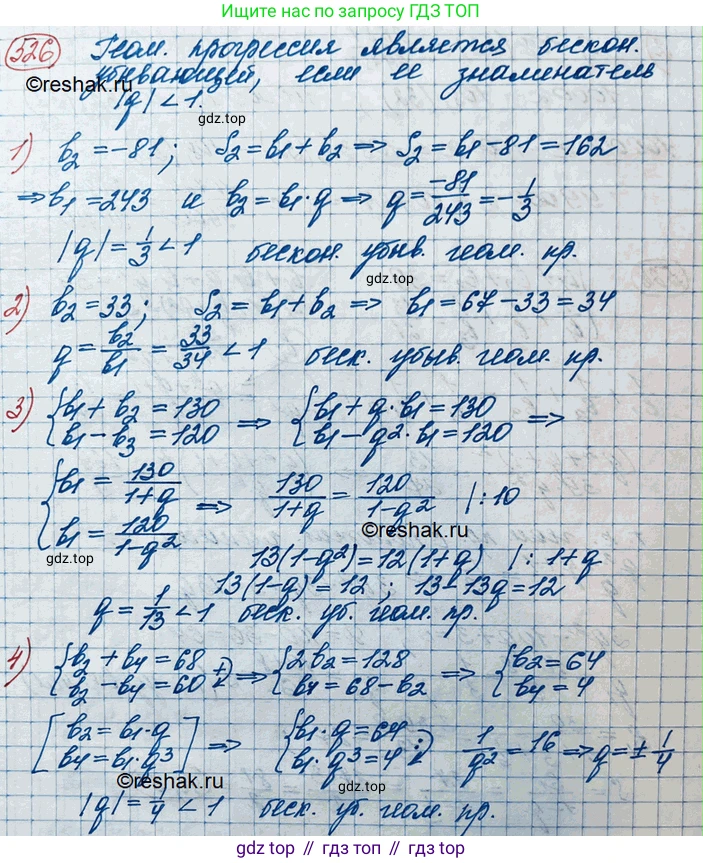 Ищите нас по запросу ГДЗ ТОП
526 Геом. прогрессия является бескон.
убывающей, если ее знаменатель
©reshak.ru
|q| < 1.
gdz.top
1) b₂ = -81; S₂ = b₁ + b₂ ⇒ S₂ = b₁ - 81 = 162
⇒ b₁ = 243 и b₂ = b₁·q ⇒ q = -81/243 = -1/3
|q| = 1/3 < 1 бескон. убыв. геом. пр.
gdz.top
2) b₂ = 33; S₂ = b₁ + b₂ ⇒ b₁ = 67 - 33 = 34
q = b₂/b₁ = 33/34 < 1 беск. убыв. геом. пр.
3) { b₁ + b₂ = 130 ⇒ { b₁ + q·b₁ = 130 ⇒
b₁ - b₃ = 120 b₁ - q²·b₁ = 120
{ b₁ = 130/(1+q) ⇒ 130/(1+q) = 120/(1-q²) |:10
b₁ = 120/(1-q²)
©reshak.ru
gdz.top
13(1-q²) = 12(1+q) |: 1+q
13(1-q) = 12; 13-13q = 12
q = 1/13 < 1 беск. уб. геом. пр.
gdz.top
4) { b₂ + b₄ = 68 +) ⇒ { 2b₂ = 128 ⇒ { b₂ = 64
b₂ - b₄ = 60 b₄ = 68 - b₂ b₄ = 4
[ b₂ = b₁·q ] ⇒ { b₁·q = 64 :) 1/q² = 16 ⇒ q = ± 1/4
b₄ = b₁·q³ b₁·q³ = 4
©reshak.ru
gdz.top
|q| = 1/4 < 1 беск. уб. геом. пр.
gdz.top // гдз топ // gdz.top